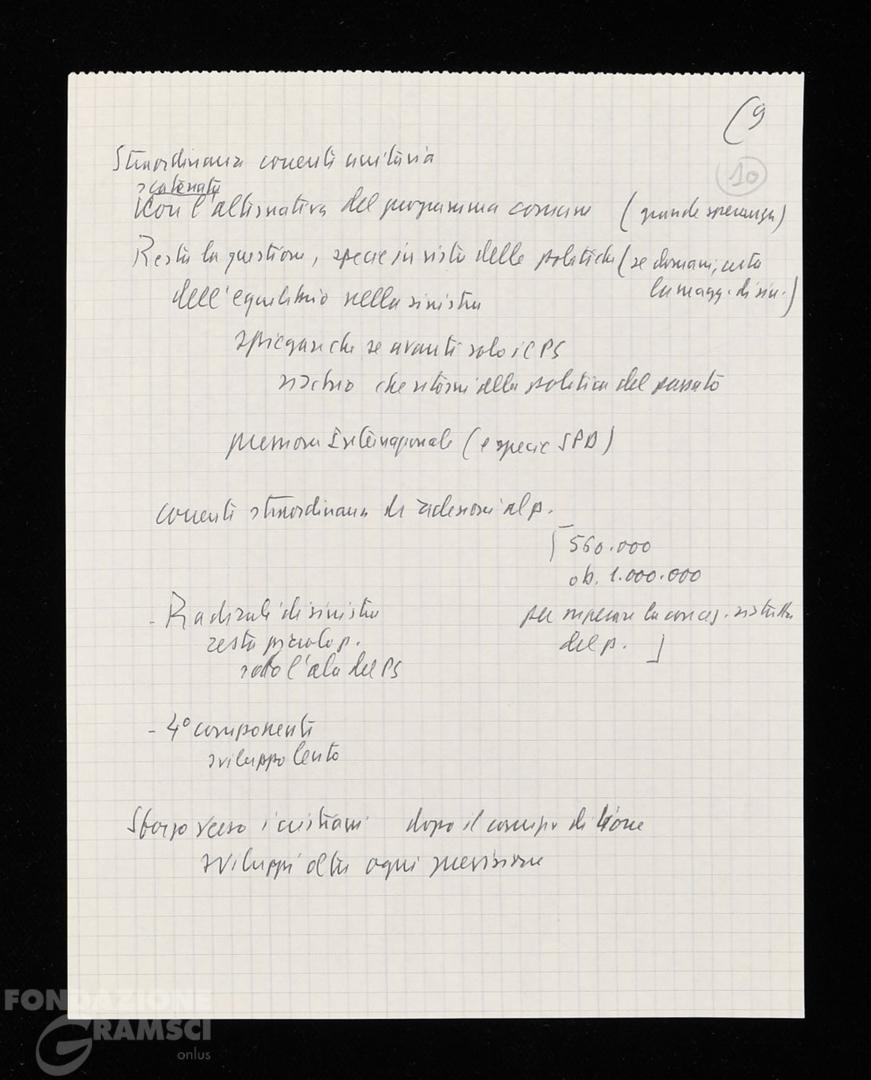 (9
10
Straordinaria corrente unitaria
scatenata
con l'alternativa del programma comune (grande speranza)
Resta la questione, specie in vista delle politiche (se domani, certa
la magg. di sin.)
dell'equilibrio nella sinistra
spiegare che se avanti solo il PS
rischio che ritorni alla politica del passato
pressioni Internazionale (e specie SPD)
corrente straordinaria di adesioni al p.
[ 560.000
ob. 1.000.000
- Radicali di sinistra
per superare la concez. ristretta
resta piccolo p.
del p. ]
sotto l'ala del PS
- 4° componente
sviluppo lento
Sforzo verso i cristiani dopo il comizio di Lione
sviluppi oltre ogni previsione
FONDAZIONE
GRAMSCI
onlus